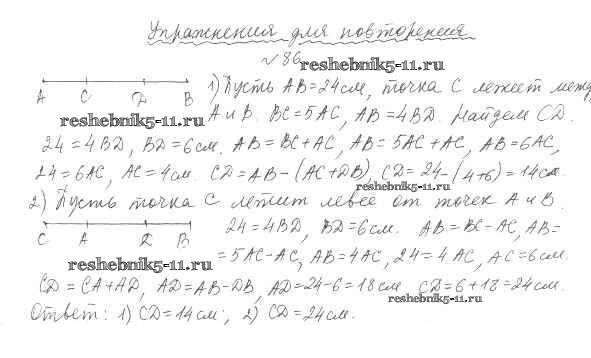 Упражнения для повторения
№86
reshebnik5-11.ru
1) Пусть AB=24см, точка C лежит между
A C D B
reshebnik5-11.ru
A и B. BC=5AC, AB=4BD. Найдем CD.
24=4BD, BD=6см. AB=BC+AC, AB=5AC+AC, AB=6AC,
24=6AC, AC=4см. CD=AB-(AC+DB), CD=24-(4+6)=14см.
reshebnik5-11.ru
2) Пусть точка C лежит левее от точек A и B.
24=4BD, BD=6см. AB=BC-AC, AB=
C A D B
=5AC-AC, AB=4AC, 24=4AC, AC=6см.
reshebnik5-11.ru
CD=CA+AD, AD=AB-DB, AD=24-6=18см CD=6+18=24см.
reshebnik5-11.ru
Ответ: 1) CD=14см; 2) CD=24см.